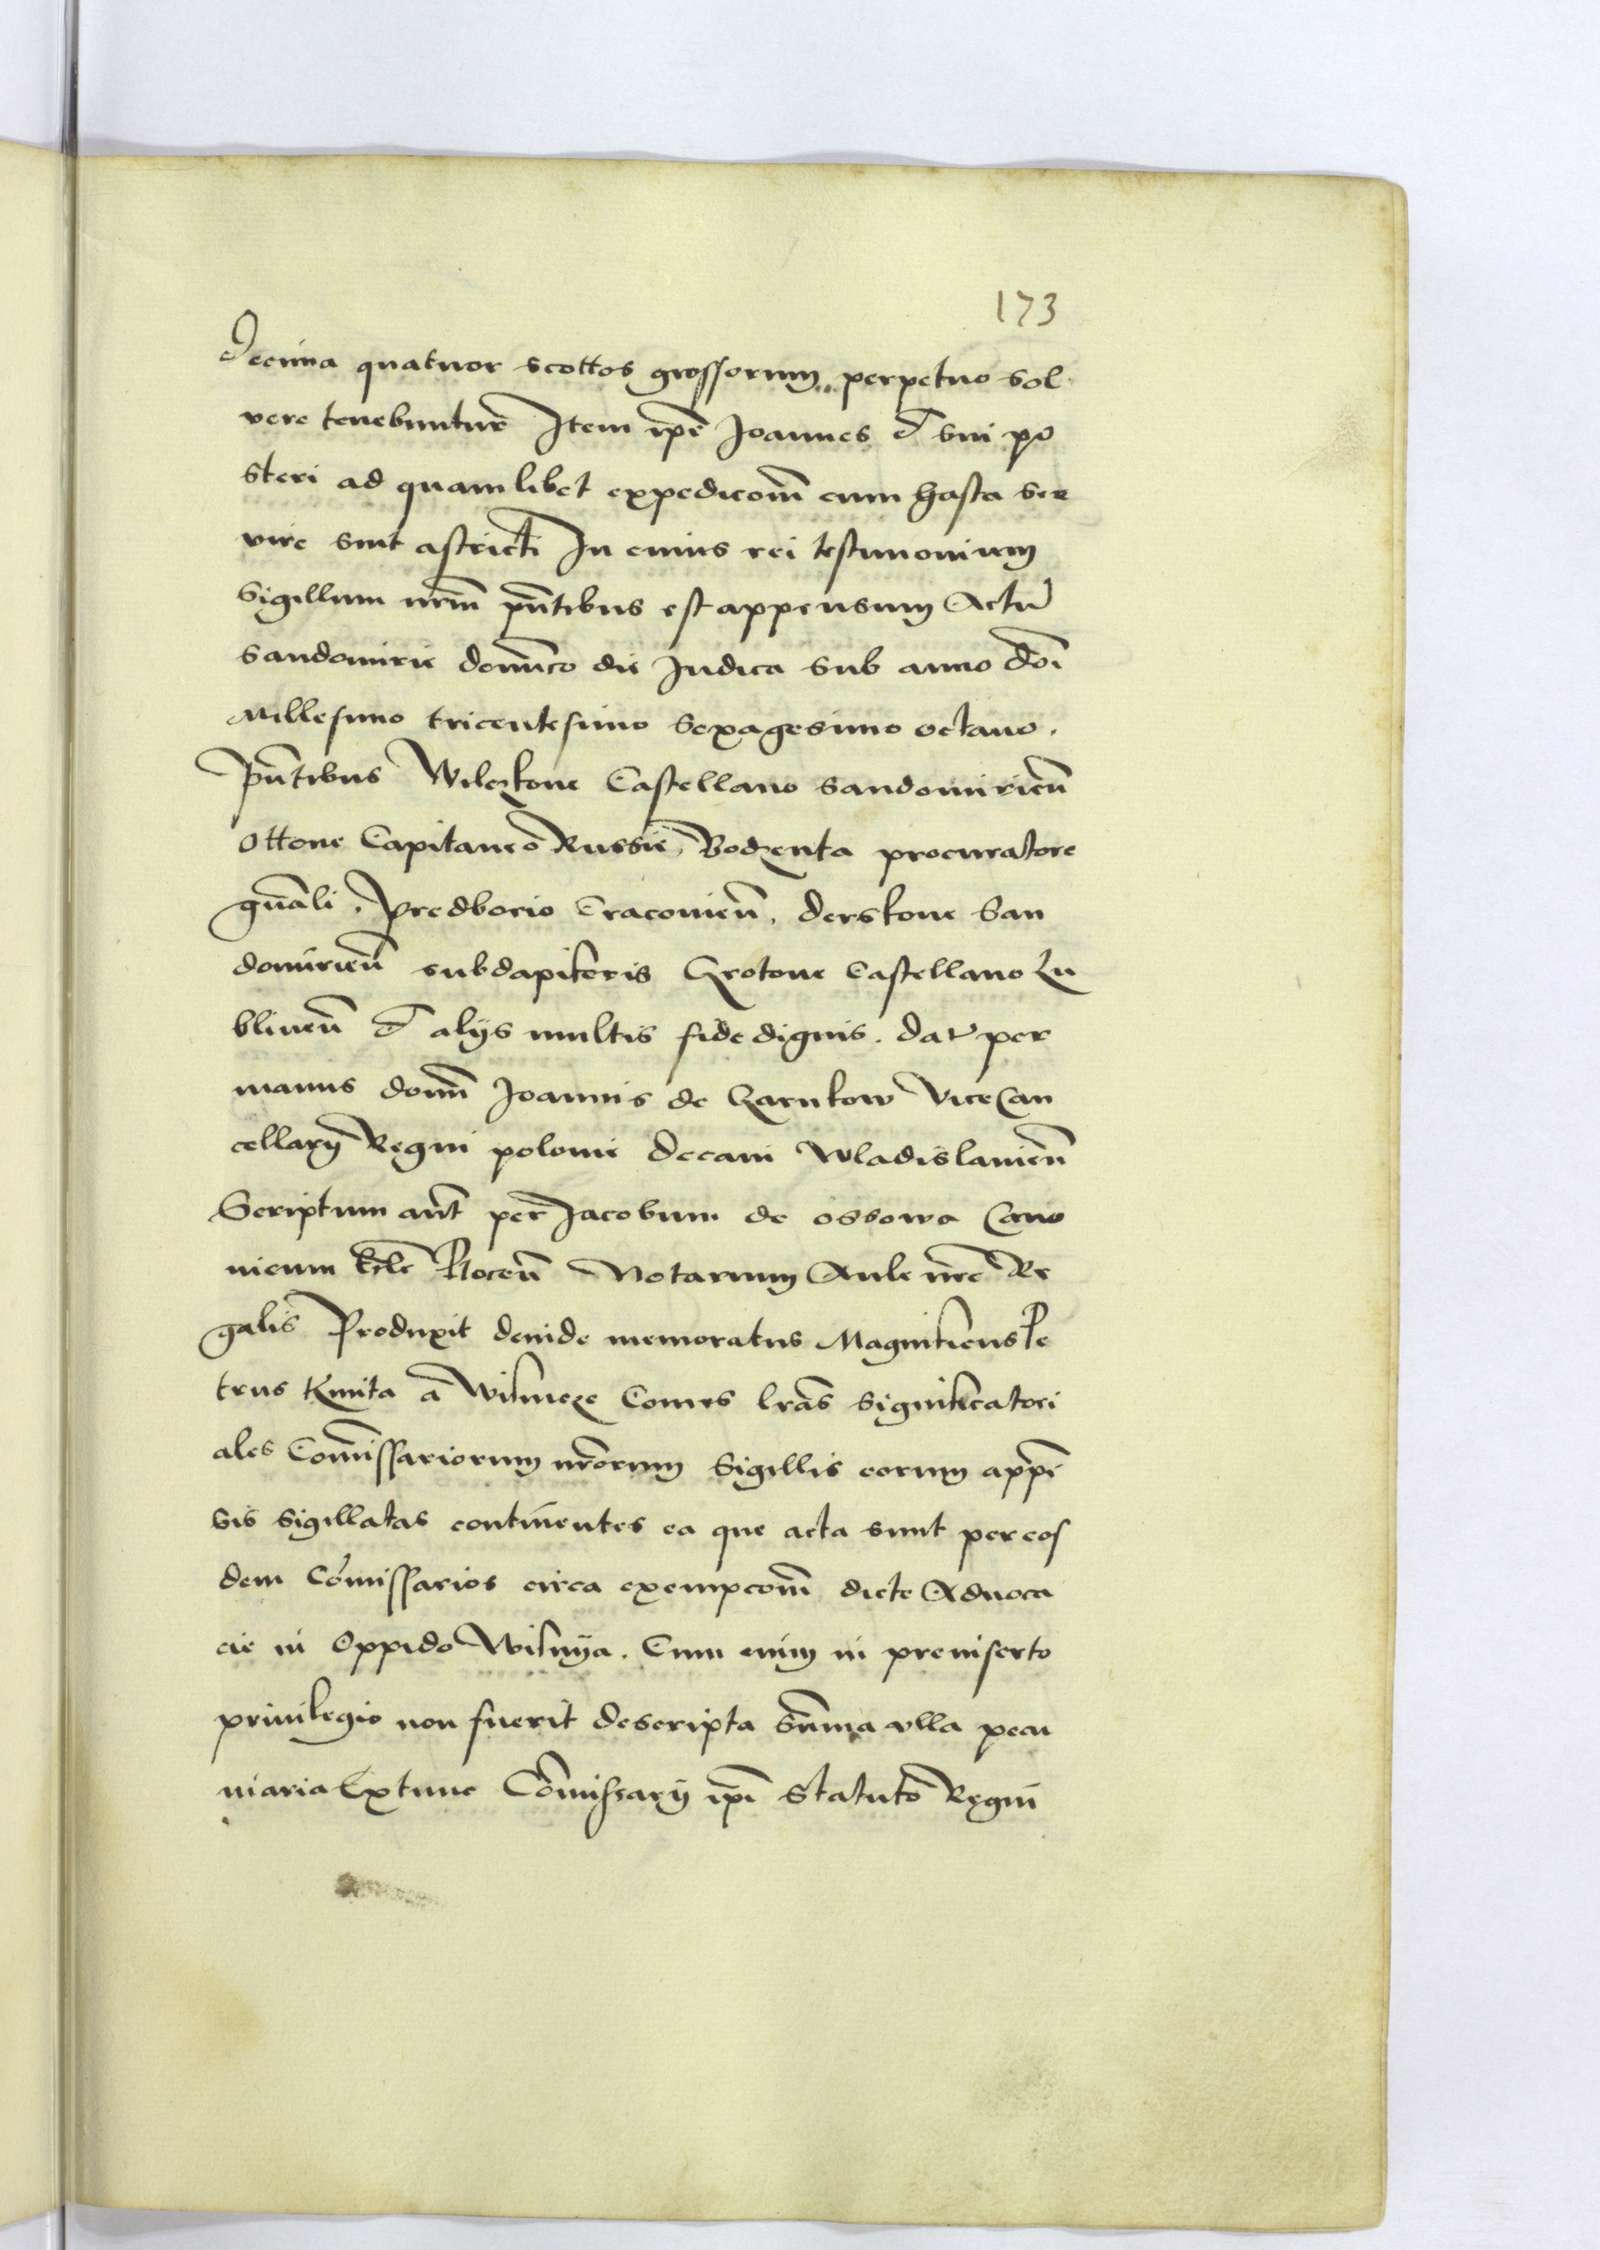 173
Decima quatuor scottos grossorum perpetuo sol
vere tenebuntur Item ip̄e Joannes et sui po
steri ad quamlibet expedicom̄ cum hasta ser
vire sint astricti In cuius rei testimonium
Sigillum nr̄m pn̄tibus est appensum Actū
Sandomirie domīco die Judica sub anno doī
Millesimo tricentesimo sexagesimo octauo.
Pn̄tibus Wilczkone Castellano Sandomirien̄
Ottone Capitaneo Russie, Bodzenta procuratore
gn̄ali. Predborio Cracouien̄. derskone San
domirien̄ subdapiferis Grotone Castellano Lu
blinen̄ et alijs multis fidedignis. dat per
manus domī Joannis de Czarnkow Vicecan
cellarij Regni polonie decani Wladislauien̄
Scriptum aūt per Jacobum de ossowa Cano
nicum Ecl̄e Plocen̄ Notarium Aule nr̄e Re
galis Produxit deinde memoratus Magnificus Pe
trus Kmita a Wisnicze Comes lr̄as significatori
ales Com̄issariorum nr̄orum Sigillis eorum app̄n
sis sigillatas continentes ea que acta sunt per eos
dem Com̄issarios circa exempcom̄ dicte Aduoca
cie in Oppido Wisnija. Cum enim in preinserto
priuilegio non fuerit descripta sum̄a vlla pecu
niaria Extunc Com̄issarij ip̄i Statuto Regni